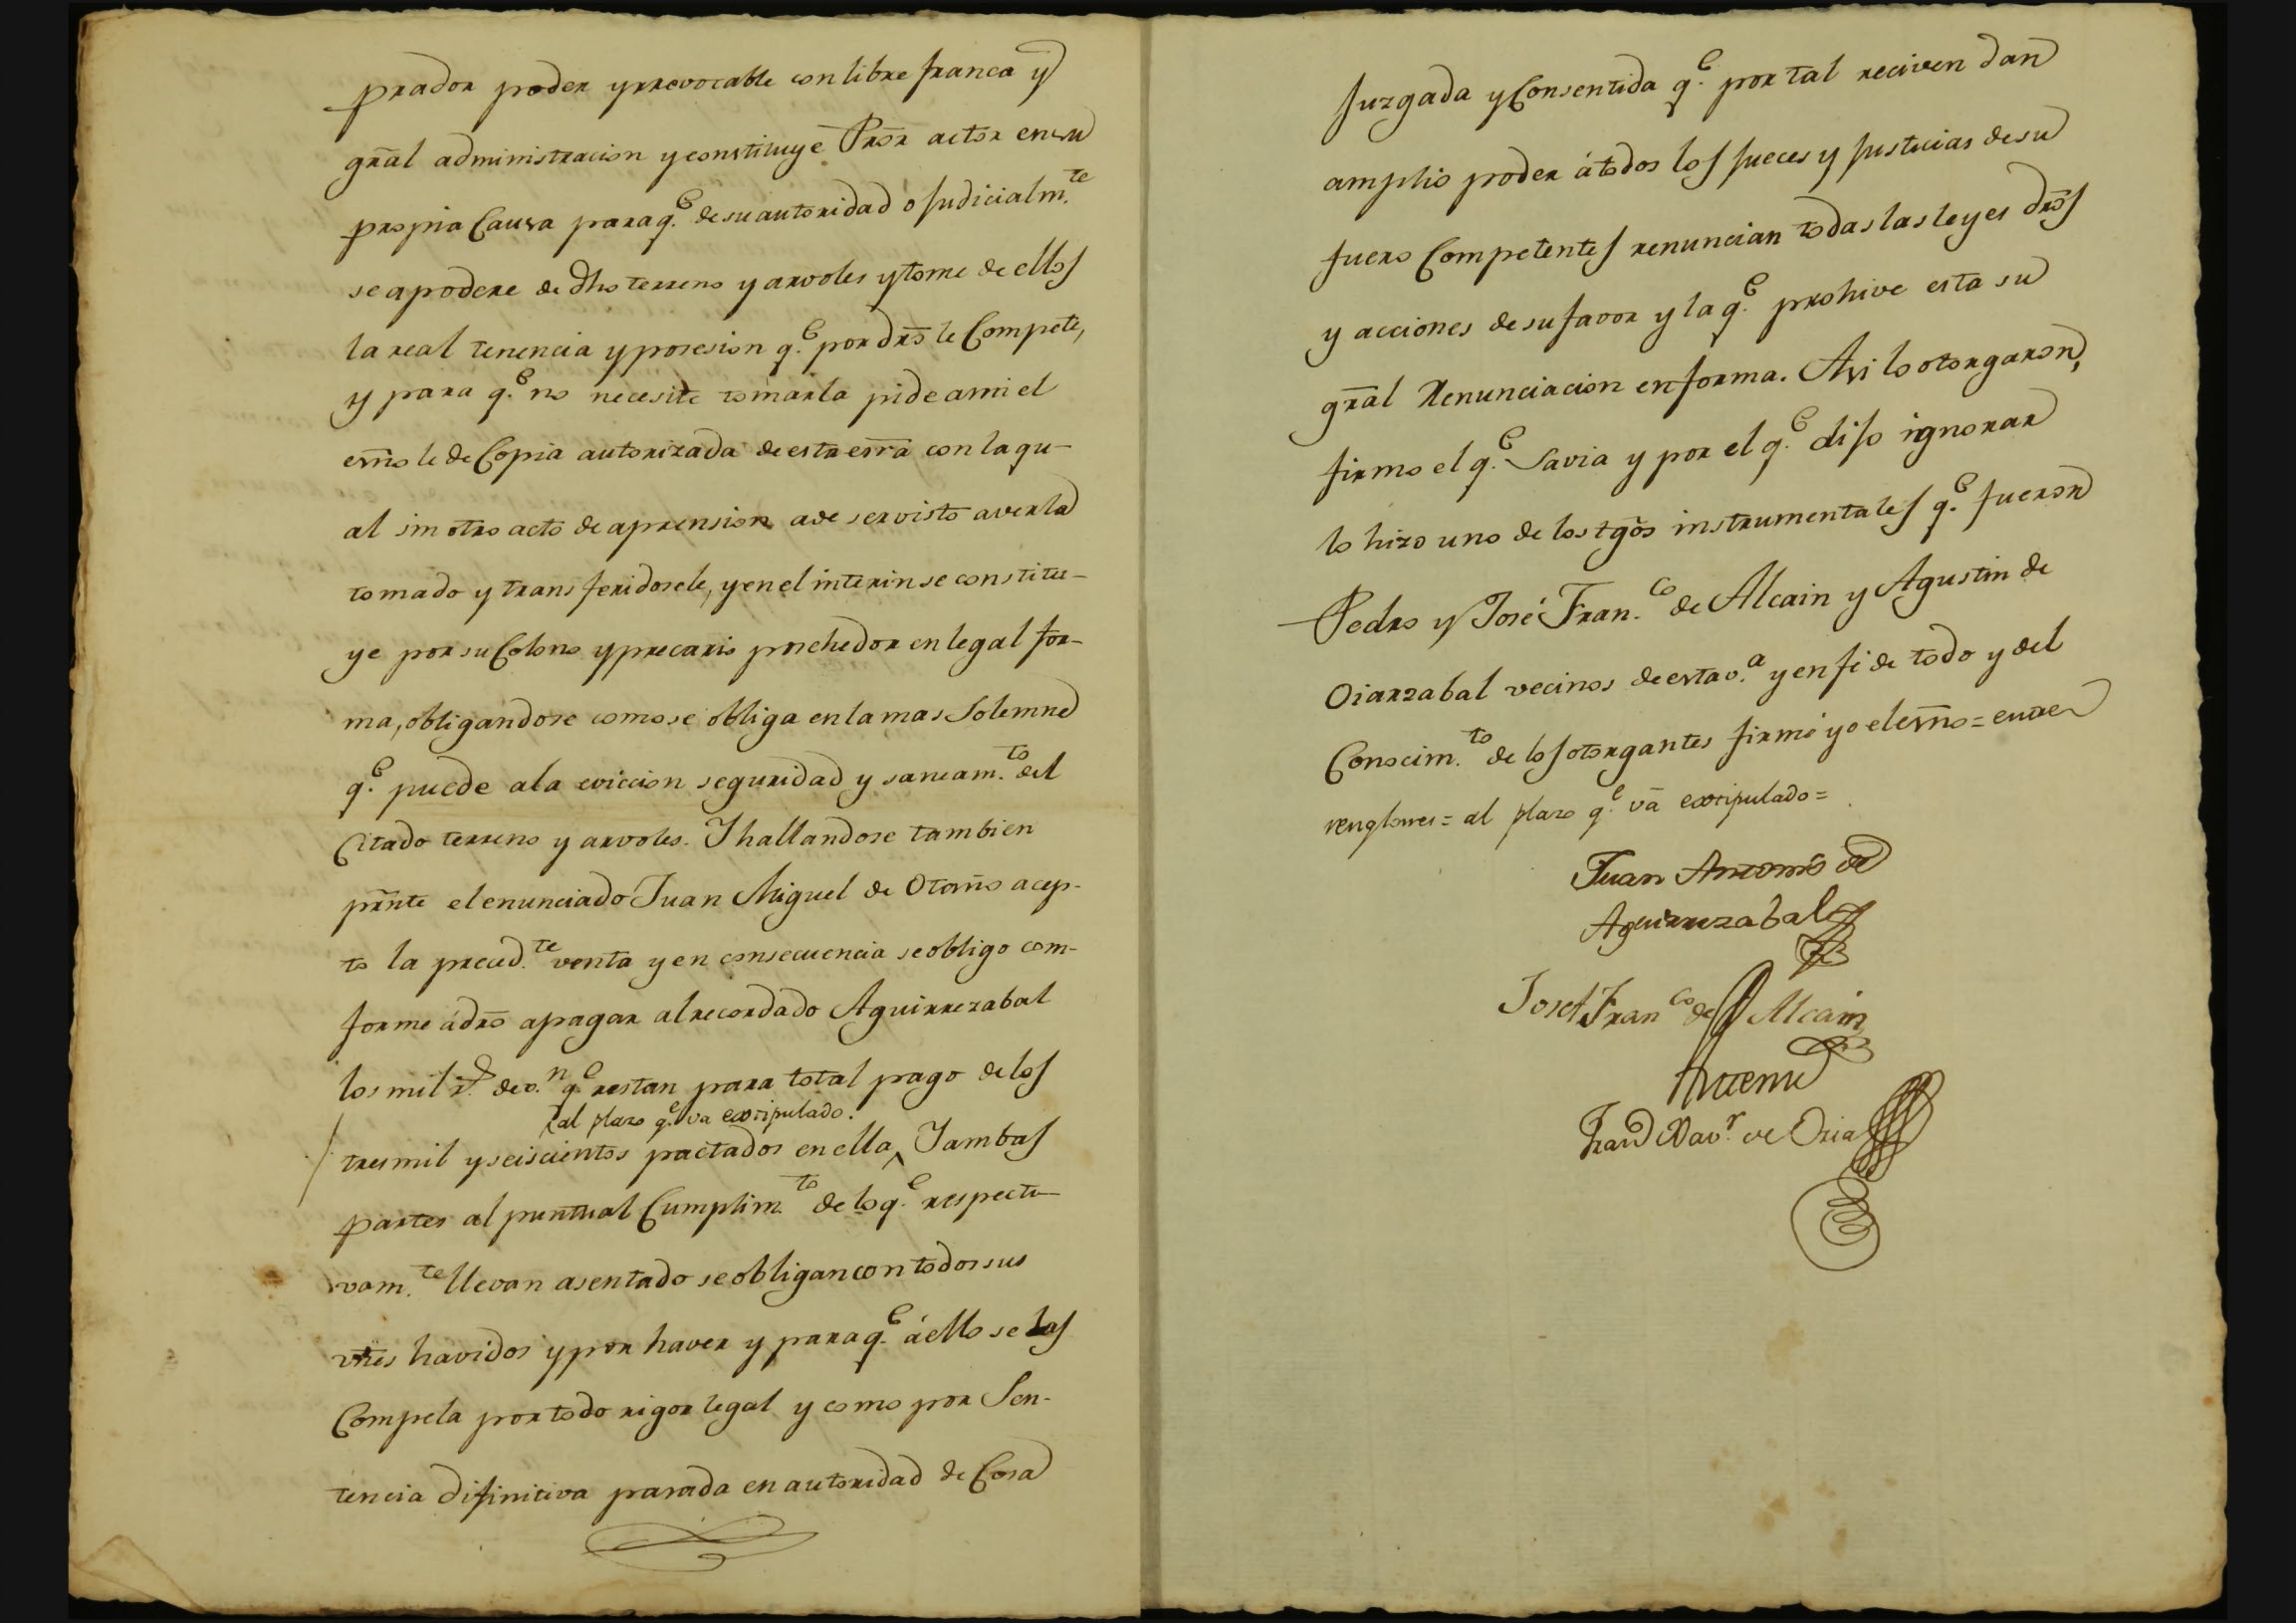 prador poder yrrevocable con libre franca y
gral administracion y constituye Pror actor en su
propia Causa para q.e de su autoridad o Judicialm.te
se apodere de dho terreno y arvoles y tome de ellos
la real tenencia y posesion q.e por dro le Compete,
y para q.e no necesite tomarla pide a mi el
esno le de Copia autorizada de esta esra con la qu-
al sin otro acto de aprension a de ser visto averla
tomado y transferidosele, y en el interin se constitu-
ye por su Colono y precario poschedor en legal for-
ma, obligandose como se obliga en la mas Solemne
q.e puede a la eviccion seguridad y saneam.to del
Citado terreno y arvoles. Y hallandose tambien
prnte el enunciado Juan Miguel de Otaño acep-
to la preced.te venta y en consecuencia se obligo com-
forme á dro a pagar al recordado Aguirrezabal
los mil r.s de v.n q.e restan para total pago de los
al plazo q.e va extipulado.
tres mil y seiscientos pactados en ella Y ambas
partes al puntual Cumplim.to de lo q.e respecti-
vam.te llevan asentado se obligan con todos sus
vnes havidos y por haver y para q.e á ello se las
Compela por todo rigor legal y como por Sen-
tencia difinitiva pasada en autoridad de Cosa
Juzgada y Consentida q.e por tal reciven dan
amplio poder á todos los Jueces y Justicias de su
fuero Competentes renuncian todas las leyes dros
y acciones de su favor y la q.e prohive esta su
gral Renunciacion en forma. Asi lo otorgaron,
firmo el q.e Savia y por el q.e dijo ignorar
lo hizo uno de los tgos instrumentales q.e fueron
Pedro y José Fran.co de Alcain y Agustin de
Oiarzabal vecinos de esta v.a y en fé de todo y del
Conocim.to de los otorgantes firmé yo el esno = entre
renglones = al plazo q.e va extipulado =
Juan Antonio de
Aguirrezabal
Josef Fran.co de Alcain
Antemi
Fran.co Xav.r de Oria